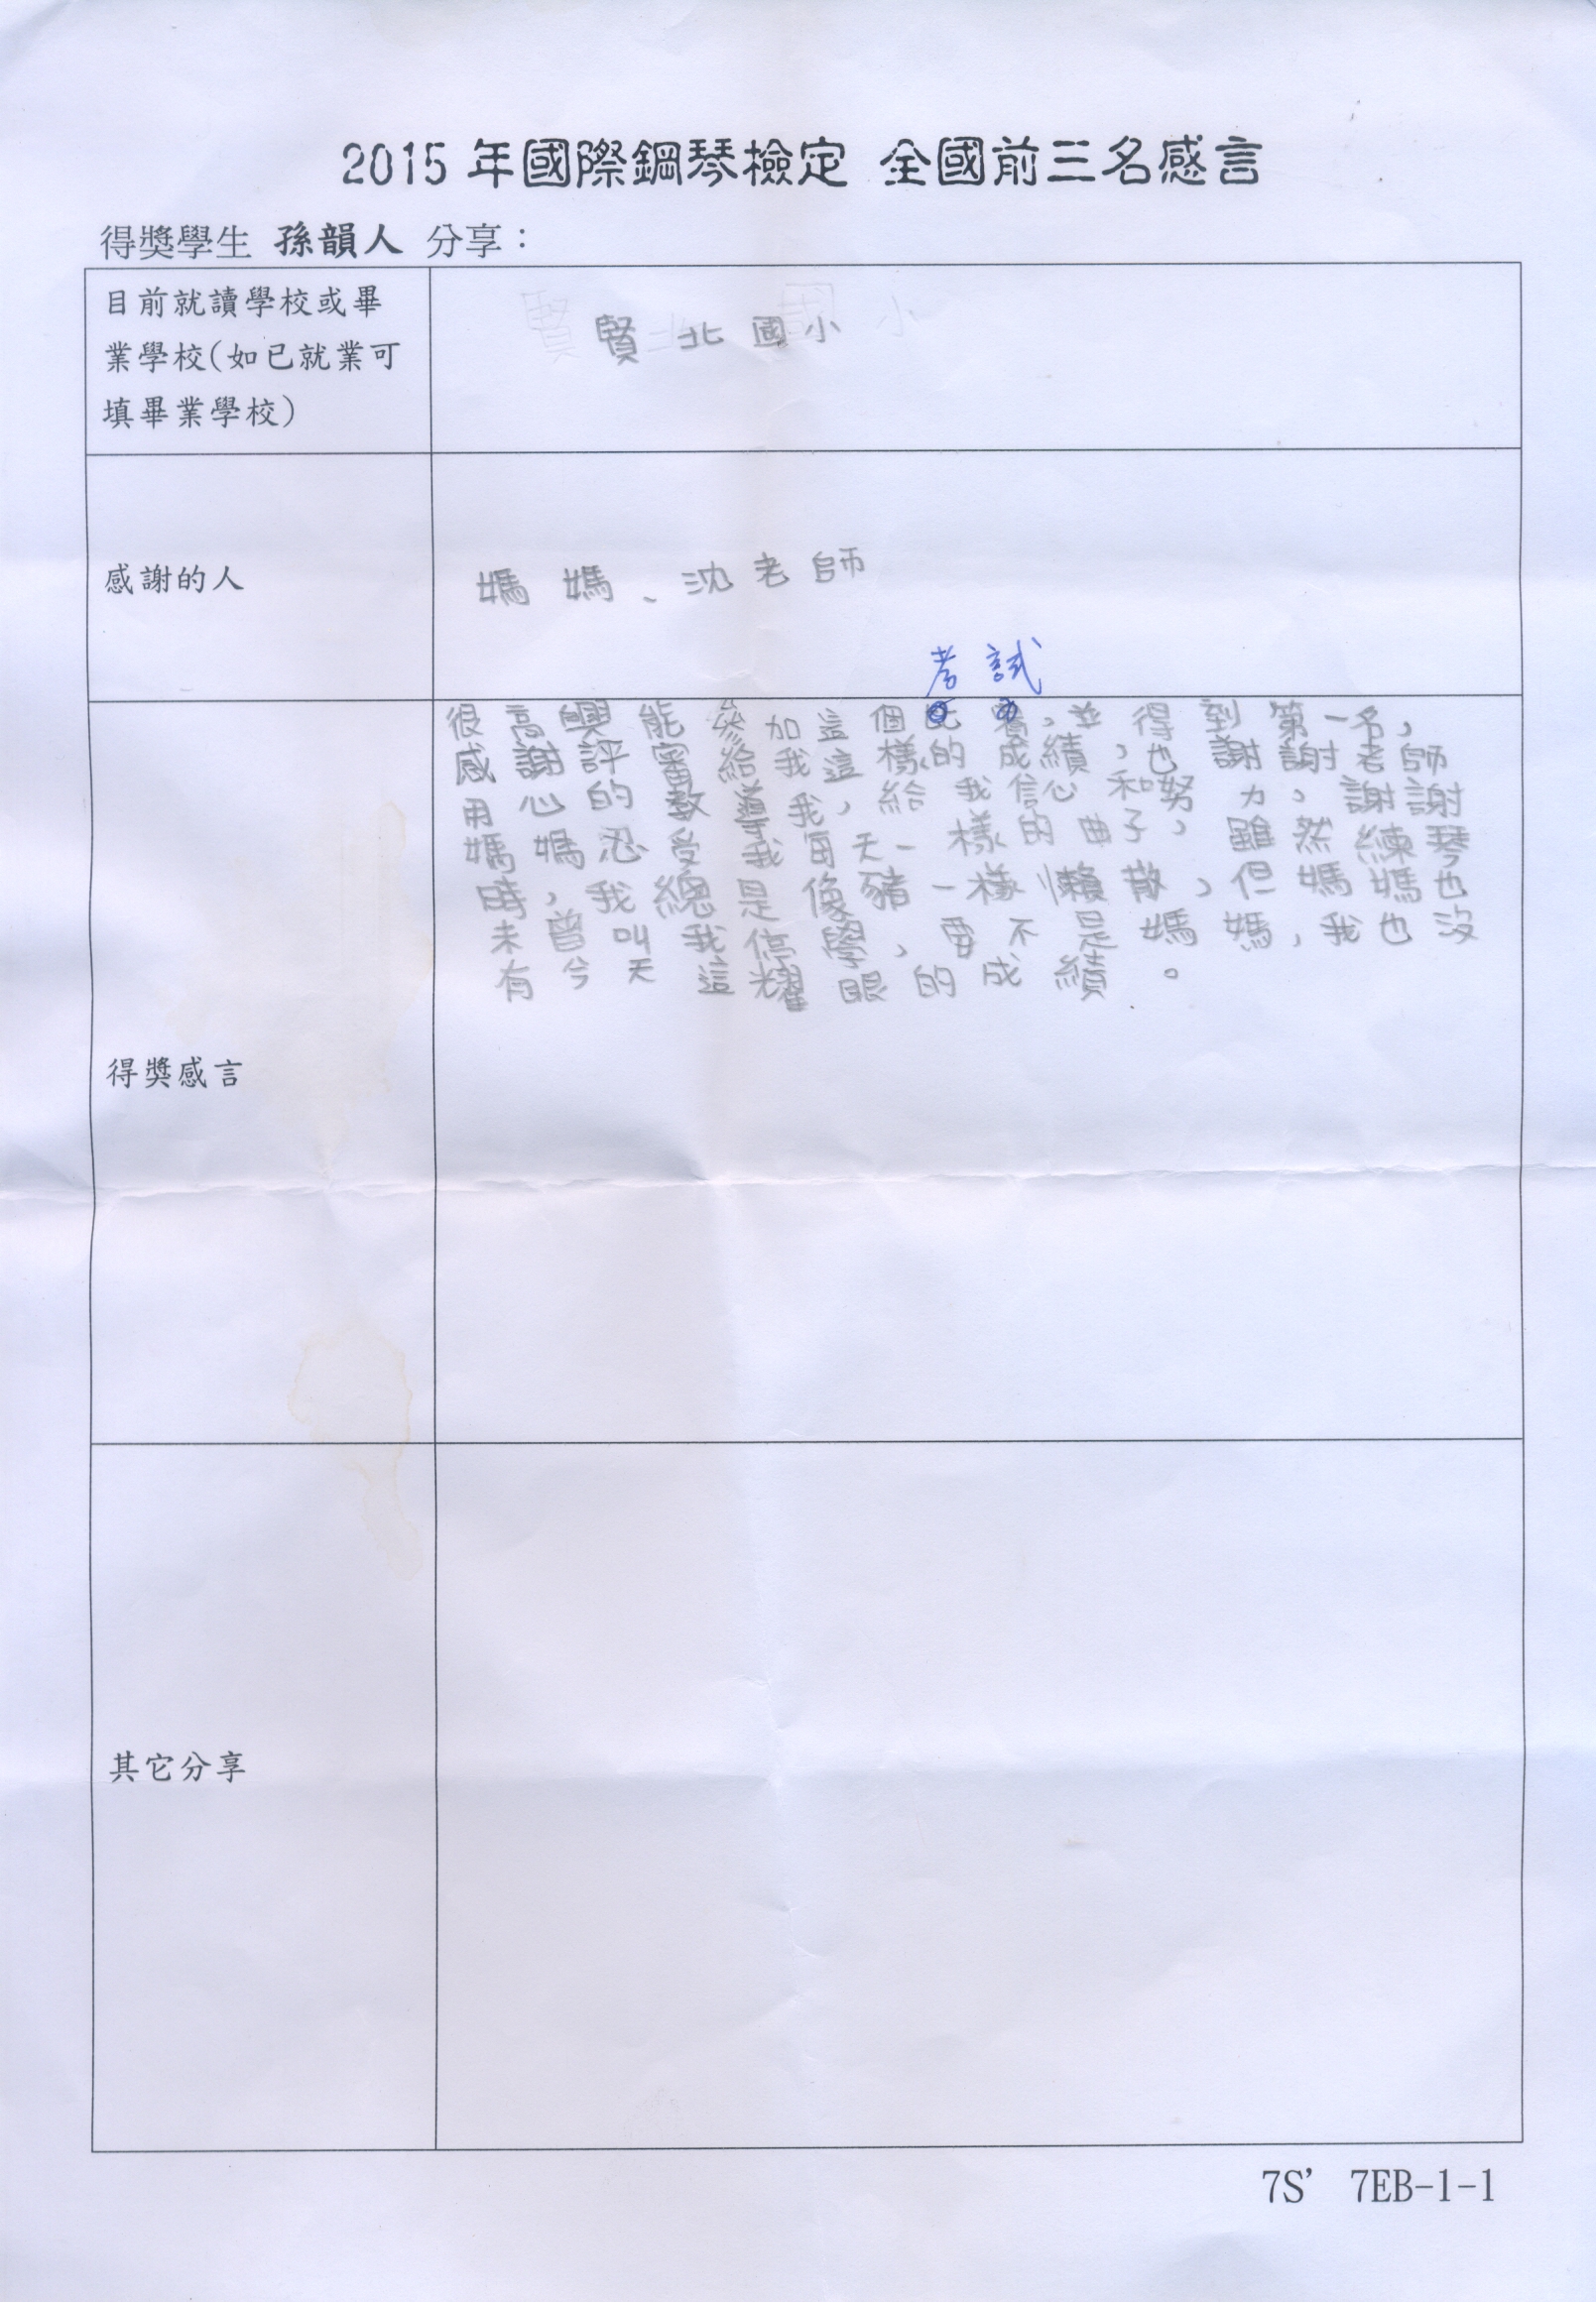 2015 年國際鋼琴檢定 全國前三名感言
得獎學生 孫韻人 分享：
目前就讀學校或畢
業學校(如已就業可
填畢業學校)
賢北國小
感謝的人
媽媽、沈老師
考試
很高興能參加這個比賽，並得到第一名，
感謝評審給我這樣的成績，也謝謝老師
用心的教導我，給我信心和努力，謝謝
媽媽忍受我每天一樣的曲子，雖然練琴
時，我總是像豬一樣懶散，但媽媽也
未曾叫我停學，要不是媽媽，我也沒
有今天這耀眼的成績。
得獎感言
其它分享
7S' 7EB-1-1